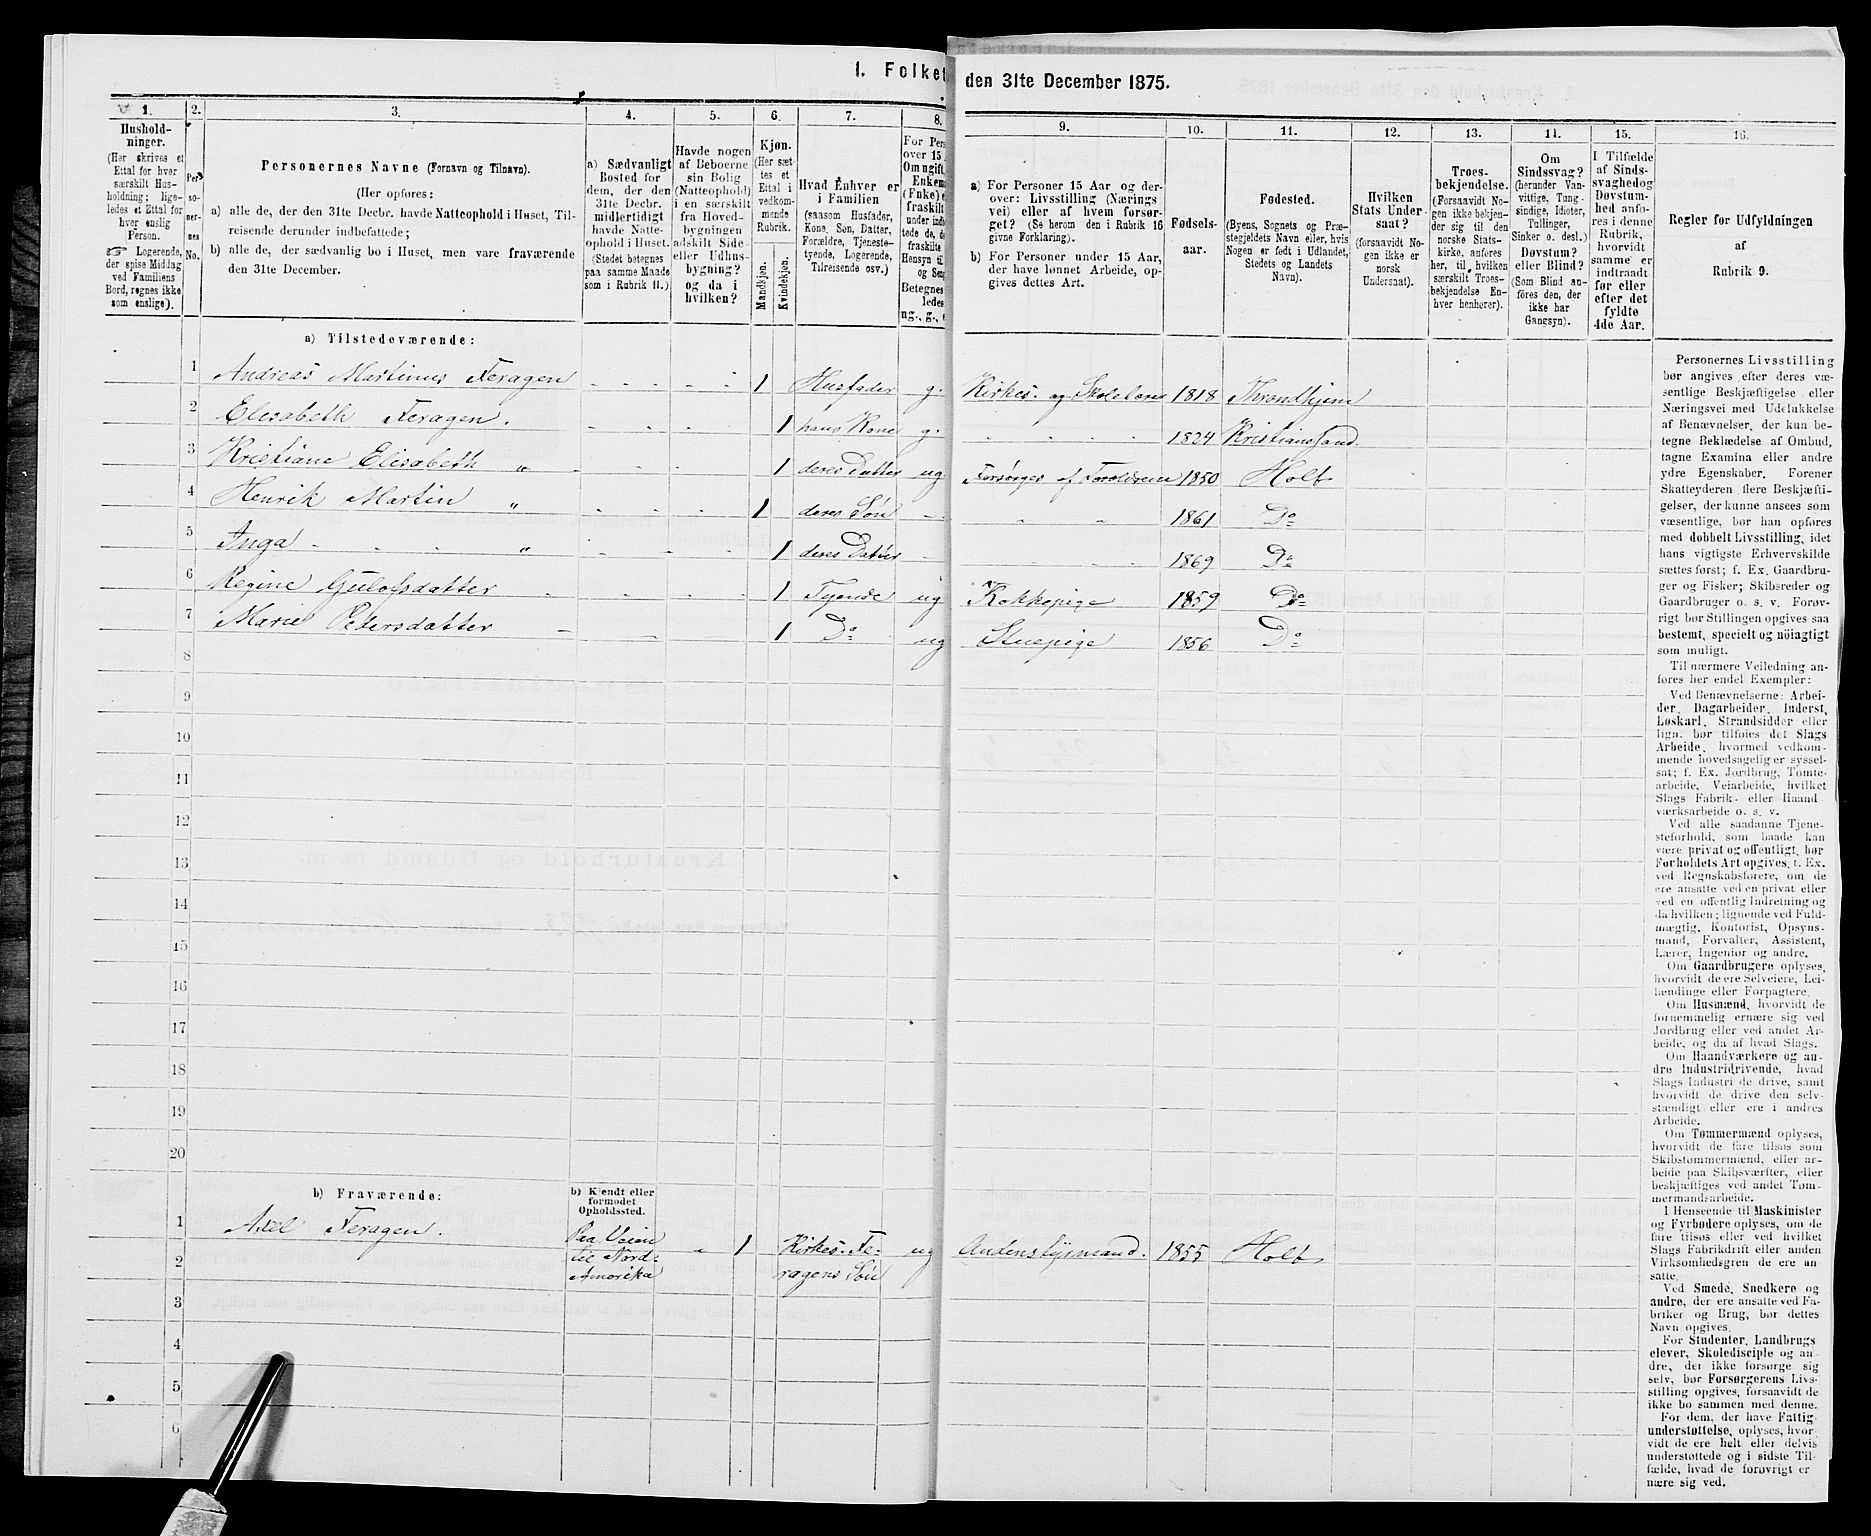 1. Folket
den 31te December 1875.
1.
Hushold-
ninger.
(Her skrives et
Ettal for hver
særskilt Hus-
holdning; lige-
ledes et Ettal for
hver enslig
Person.
☞ Logerende,
der spise Middag
ved Familiens
Bord, regnes ikke
som enslige).
2.
Per-
so-
ner-
nes
No.
3.
Personernes Navne (Fornavn og Tilnavn).
(Her opføres:
a) alle de, der den 31te Decbr. havde Natteophold i Huset, Til-
reisende derunder indbefattede;
b) alle de, der sædvanlig bo i Huset, men vare fraværende
den 31te December.
4.
a) Sædvanligt
Bosted for
dem, der den
31te Decbr.
midlertidigt
havde Natte-
ophold i Huset.
(Stedet betegnes
paa samme Maade
som i Rubrik 11.)
5.
Havde nogen
af Beboerne
sin Bolig
(Natteophold)
i en særskilt
fra Hoved-
bygningen
adskilt Side-
eller Udhus-
bygning?
og da i
hvilken?
6.
Kjøn.
(Her sæt-
tes et
Ettal i
vedkom-
mende
Rubrik.
Mandkjøn.
Kvindekjøn.
7.
Hvad Enhver er
i Familien
(saasom Husfader,
Kone, Søn, Datter,
Forældre, Tjeneste-
tyende, Logerende,
Tilreisende osv.)
8.
For Pers
over 15
Om ugift,
Enkema
(Enke) e
fraskilt
under indb
tede de, de
fraskilte
Hensyn til
og Seng
Betegnes
ledes
ug., g., e
9.
a) For Personer 15 Aar og der-
over: Livsstilling (Nærings
vei) eller af hvem forsør-
get? (Se herom den i Rubrik 16
givne Forklaring).
b) For Personer under 15 Aar,
der have lønnet Arbeide, op-
gives dettes Art.
10.
Fødsels-
aar.
11.
Fødested.
(Byens, Sognets og Præ-
stegjeldets Navn eller, hvis
Nogen er født i Udlandet,
Stedets og Landets
Navn).
12.
Hvilken
Stats Under-
saat?
(forsaavidt No-
gen ikke er
norsk
Undersaat).
13.
Troes-
bekjendelse.
(Forsaavidt No-
gen ikke bekjen-
der sig til den
norske Stats-
kirke, anføres
her, til hvilken
særskilt Troes-
bekjendelse En-
hver henhører).
14.
Om
Sindssvag?
(herunder Van-
vittige, Tung-
sindige, Idioter,
Tullinger,
Sinker o. desl.)
Døvstum?
eller Blind?
(Som Blind an-
føres den, der
ikke har
Gangsyn).
15.
I Tilfælde
af Sinds-
svaghed og
Døvstum-
hed anfø-
res i denne
Rubrik,
hvorvidt
samme er
indtraadt
før eller
efter det
fyldte
4de Aar.
16.
Regler for Udfyldningen
af
Rubrik 9.
a) Tilstedeværende:
1 Andreas Martinus Feragen 1 Husfader g. Kirkes. og Skolelærer 1818 Throndhjem
2 Elisabeth Feragen. 1 hans Kone g. 1824 Kristianssand.
3 Kristiane Elisabeth " 1 deres Datter ug Forsørges af Forældrene 1850 Holt
4 Henrik Martin " 1 deres Søn " " 1861 Do
5 Inga " 1 deres Datter 1869 Do
6 Regine Gulofsdatter 1 Tyende ug Kokkepige 1859 Do
7 Marie Pedersdatter 1 Do ug Stuepige 1856 Do
8
9
10
11
12
13
14
15
16
17
18
19
20
b) Fraværende:
b) Kjendt eller
formodet
Opholdssted.
1 Axel Feragen. Paa Veien 1 Kirkes. Fe- ug Andenstyrmand. 1855 Holt
til Nord-
2 Amerika ragens Søn
3
4
5
6
Personernes Livsstilling
bør angives efter deres væ-
sentlige Beskjæftigelse eller
Næringsvei med Udelukkelse
af Benævnelser, der kun be-
tegne Beklædelse af Ombud,
tagne Examina eller andre
ydre Egenskaber. Forener
Skatteyderen flere Beskjæfti-
gelser, der kunne ansees som
væsentlige, bør han opføres
med dobbelt Livsstilling, idet
hans vigtigste Erhvervskilde
sættes først; f. Ex. Gaardbru-
ger og Fisker; Skibsreder og
Gaardbruger o. s. v. Forøv-
rigt bør Stillingen opgives saa
bestemt, specielt og nöiagtigt
som muligt.
Til nærmere Veiledning an-
føres her endel Exempler:
Ved Benævnelserne: Arbei-
der, Dagarbeider, Inderst,
Løskarl, Strandsidder eller
lign. bør tilføies det Slags
Arbeide, hvormed vedkom-
mende hovedsagelig er syssel-
sat; f. Ex. Jordbrug, Tomte-
arbeide, Veiarbeide, hvilket
Slags Fabrik- eller Haand
værksarbeide o. s. v.
Ved alle saadanne Tjene-
steforhold, som baade kan
være privat og offentligt, bør
Forholdets Art opgives, t. Ex.
ved Regnskabsførere, om de
ere ansatte ved en privat eller
ved en offentlig Indretning og
da hvilken; lignende ved Fuld-
mægtig, Kontorist, Opsyns-
mand, Forvalter, Assistent,
Lærer, Ingeniør og andre.
Om Gaardbrugere oplyses,
hvorvidt de ere Selveiere, Lei-
lændinge eller Forpagtere.
Om Husmænd, hvorvidt de
fornemmelig ernære sig ved
Jordbrug eller ved andet Ar-
beide, og da af hvad Slags.
Om Haandværkere og an-
dre Industridrivende, hvad
Slags Industri de drive, samt
hvorvidt de drive den selv-
stændigt eller ere i andres
Arbeide.
Om Tømmermænd oplyses,
hvorvidt de fare tilsøs som
Skibstømmermænd, eller ar-
beide paa Skibsværfter, eller
beskjæftiges ved andet Tøm-
mermandsarbeide.
I Henseende til Maskinister
og Fyrbødere oplyses, om de
fare tilsøs eller ved hvilket
Slags Fabrikdrift eller anden
Virksomhedsgren de ere an-
satte.
Ved Smede, Snedkere og
andre, der ere ansatte ved Fa-
briker og Brug, bør dettes
Navn opgives.
For Studenter, Landbrugs
elever, Skoledisciple og an-
dre, der ikke forsørge sig
selv, bør Forsørgerens Livs-
stilling opgives, forsaavidt de
ikke bo sammen med denne.
For dem, der have Fattig-
understøttelse, oplyses, hvor-
vidt de ere helt eller delvis
understøttede og i sidste Til-
fælde, hvad de forøvrigt er
nære sig ved.